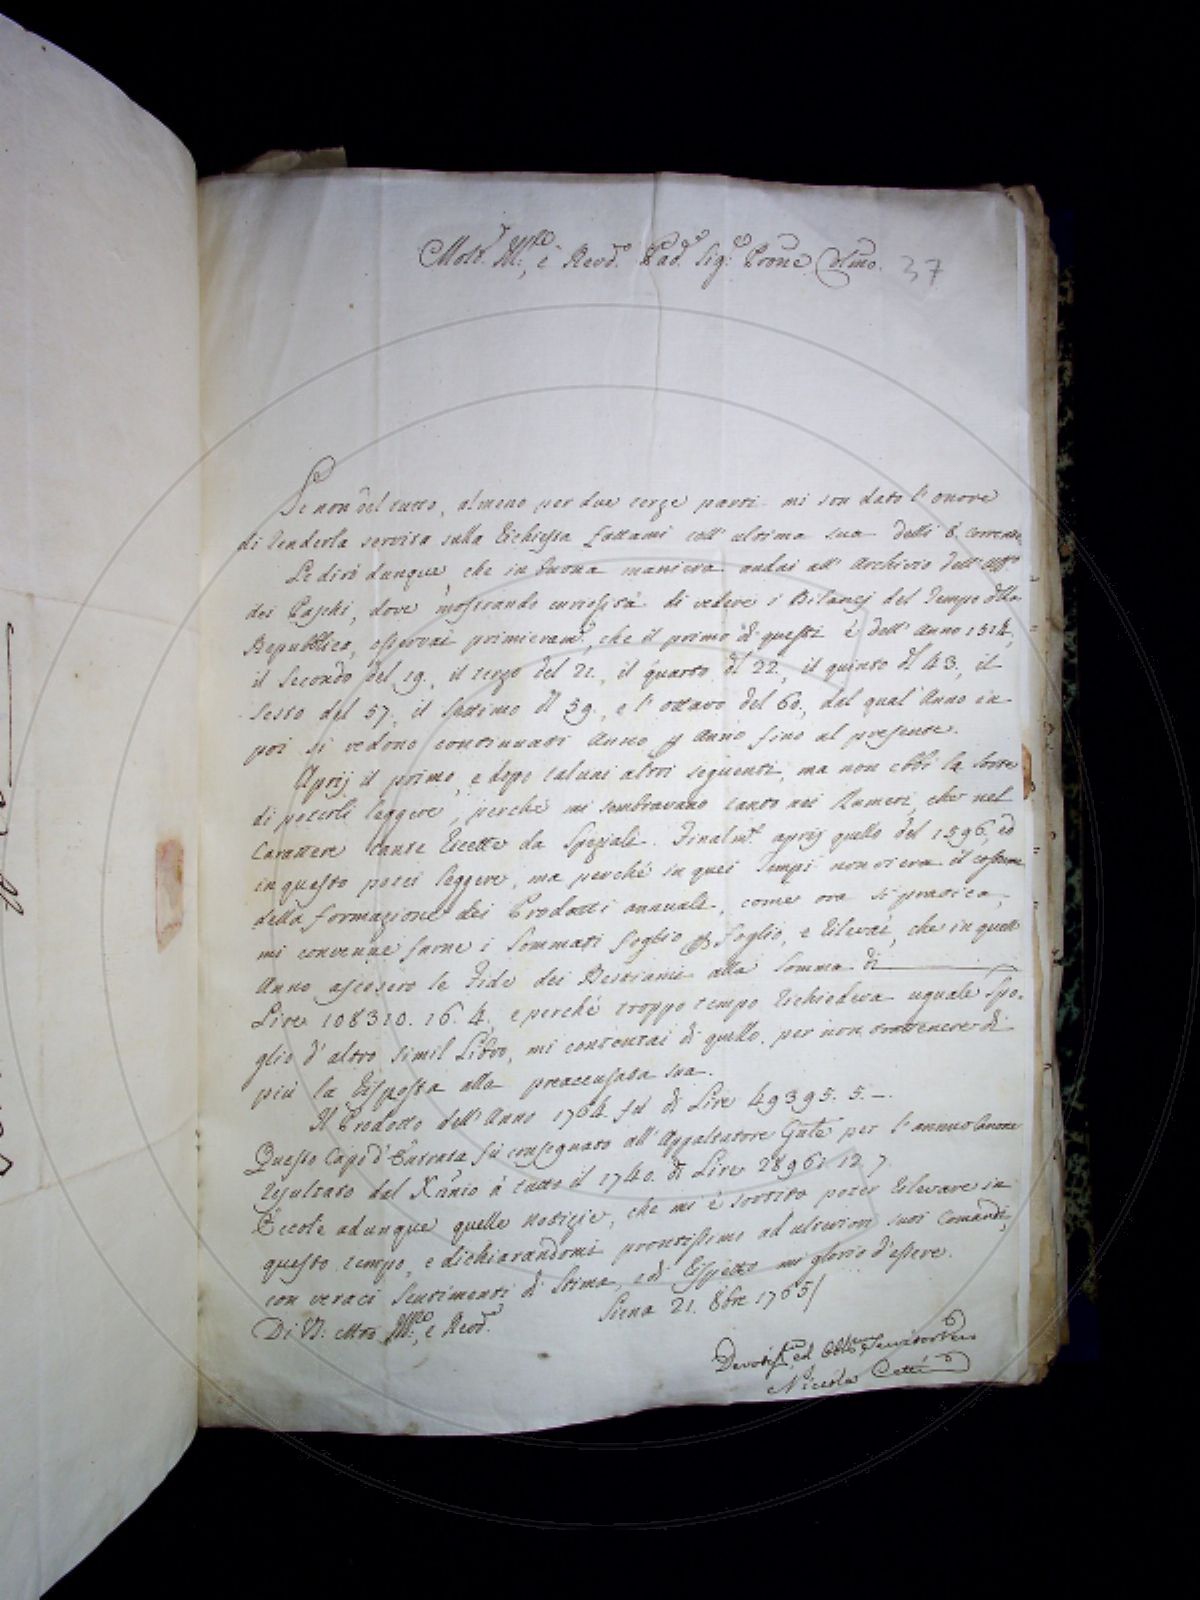 Molt. Ill.re, e Revd.o Pad. Sig. Prone Colmo. 37
Se non del tutto, almeno per due terze parti mi son dato l'onore
di renderla servita sulla richiesta fattami coll'ultima sua delli 8. corrente
Le dirò dunque, che in buona maniera andai all'Archivio dell'Uff.o
dei Paschi, dove mostrando curiosità di vedere i Bilanci del Tempo dlla
Repubblica, osservai primieram.e, che il primo di questi è dell'Anno 1514,
il Secondo del 19., il terzo del 21., il quarto dl 22., il quinto dl 43, il
Sesto del 57., il Settimo dl 59., e l'ottavo del 60., dal qual'Anno in
poi si vedono continuati Anno p Anno fino al presente.
Aprij il primo, e dopo taluni altri seguenti, ma non ebbi la sorte
di poterli leggere, perchè mi sembravano tanto nei Numeri, che nel
Carattere tante ricette da Speziale. Finalm.e aprij quello del 1596, ed
in questo potei leggere, ma perché in quei tempi non vi era il costume
della formazione dei Prodotti annuale, come ora si pratica,
mi convenne farne i Sommati foglio p foglio, e rilevai, che in quell'
Anno ascesero le Fide dei Bestiami alla Somma di
Lire 108310. 16. 4, e perché troppo tempo richiedeva uguale Spo-
glio d'altro simil Libro, mi contentai di quello, per non trattenere di
più la risposta alla preaccusata sua.
Il Prodotto dell'Anno 1764. fù di Lire 49395. 5. —.
Questo Capo d'Entrata fù consegnato all'Appaltatore Gnle per l'annuo Canone
resultato dal Xannio à tutto il 1740. di Lire 28961 12 7.
Eccole adunque quelle notizie, che mi è sortito poter rilevare in
questo tempo, e dichiarandomi prontissimo ad ulteriori suoi Comandi,
con veraci Sentimenti di Stima, e di rispetto mi glorio d'essere.
Di V. Mto Ill.re, e Revd.
Siena 21. 8bre 1765/
Devotis.mo ed Obbl.mo Servitor Vero
Niccolò